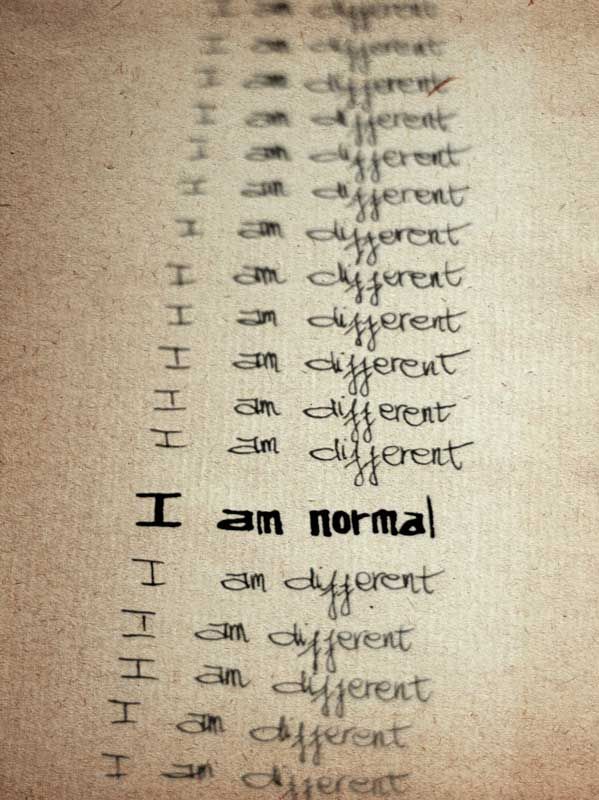 I am different
I am different
I am different
I am different
I am different
I am different
I am different
I am different
I am different
I am different
I am different
I am different
I am normal
I am different
I am different
I am different
I am different
I am different